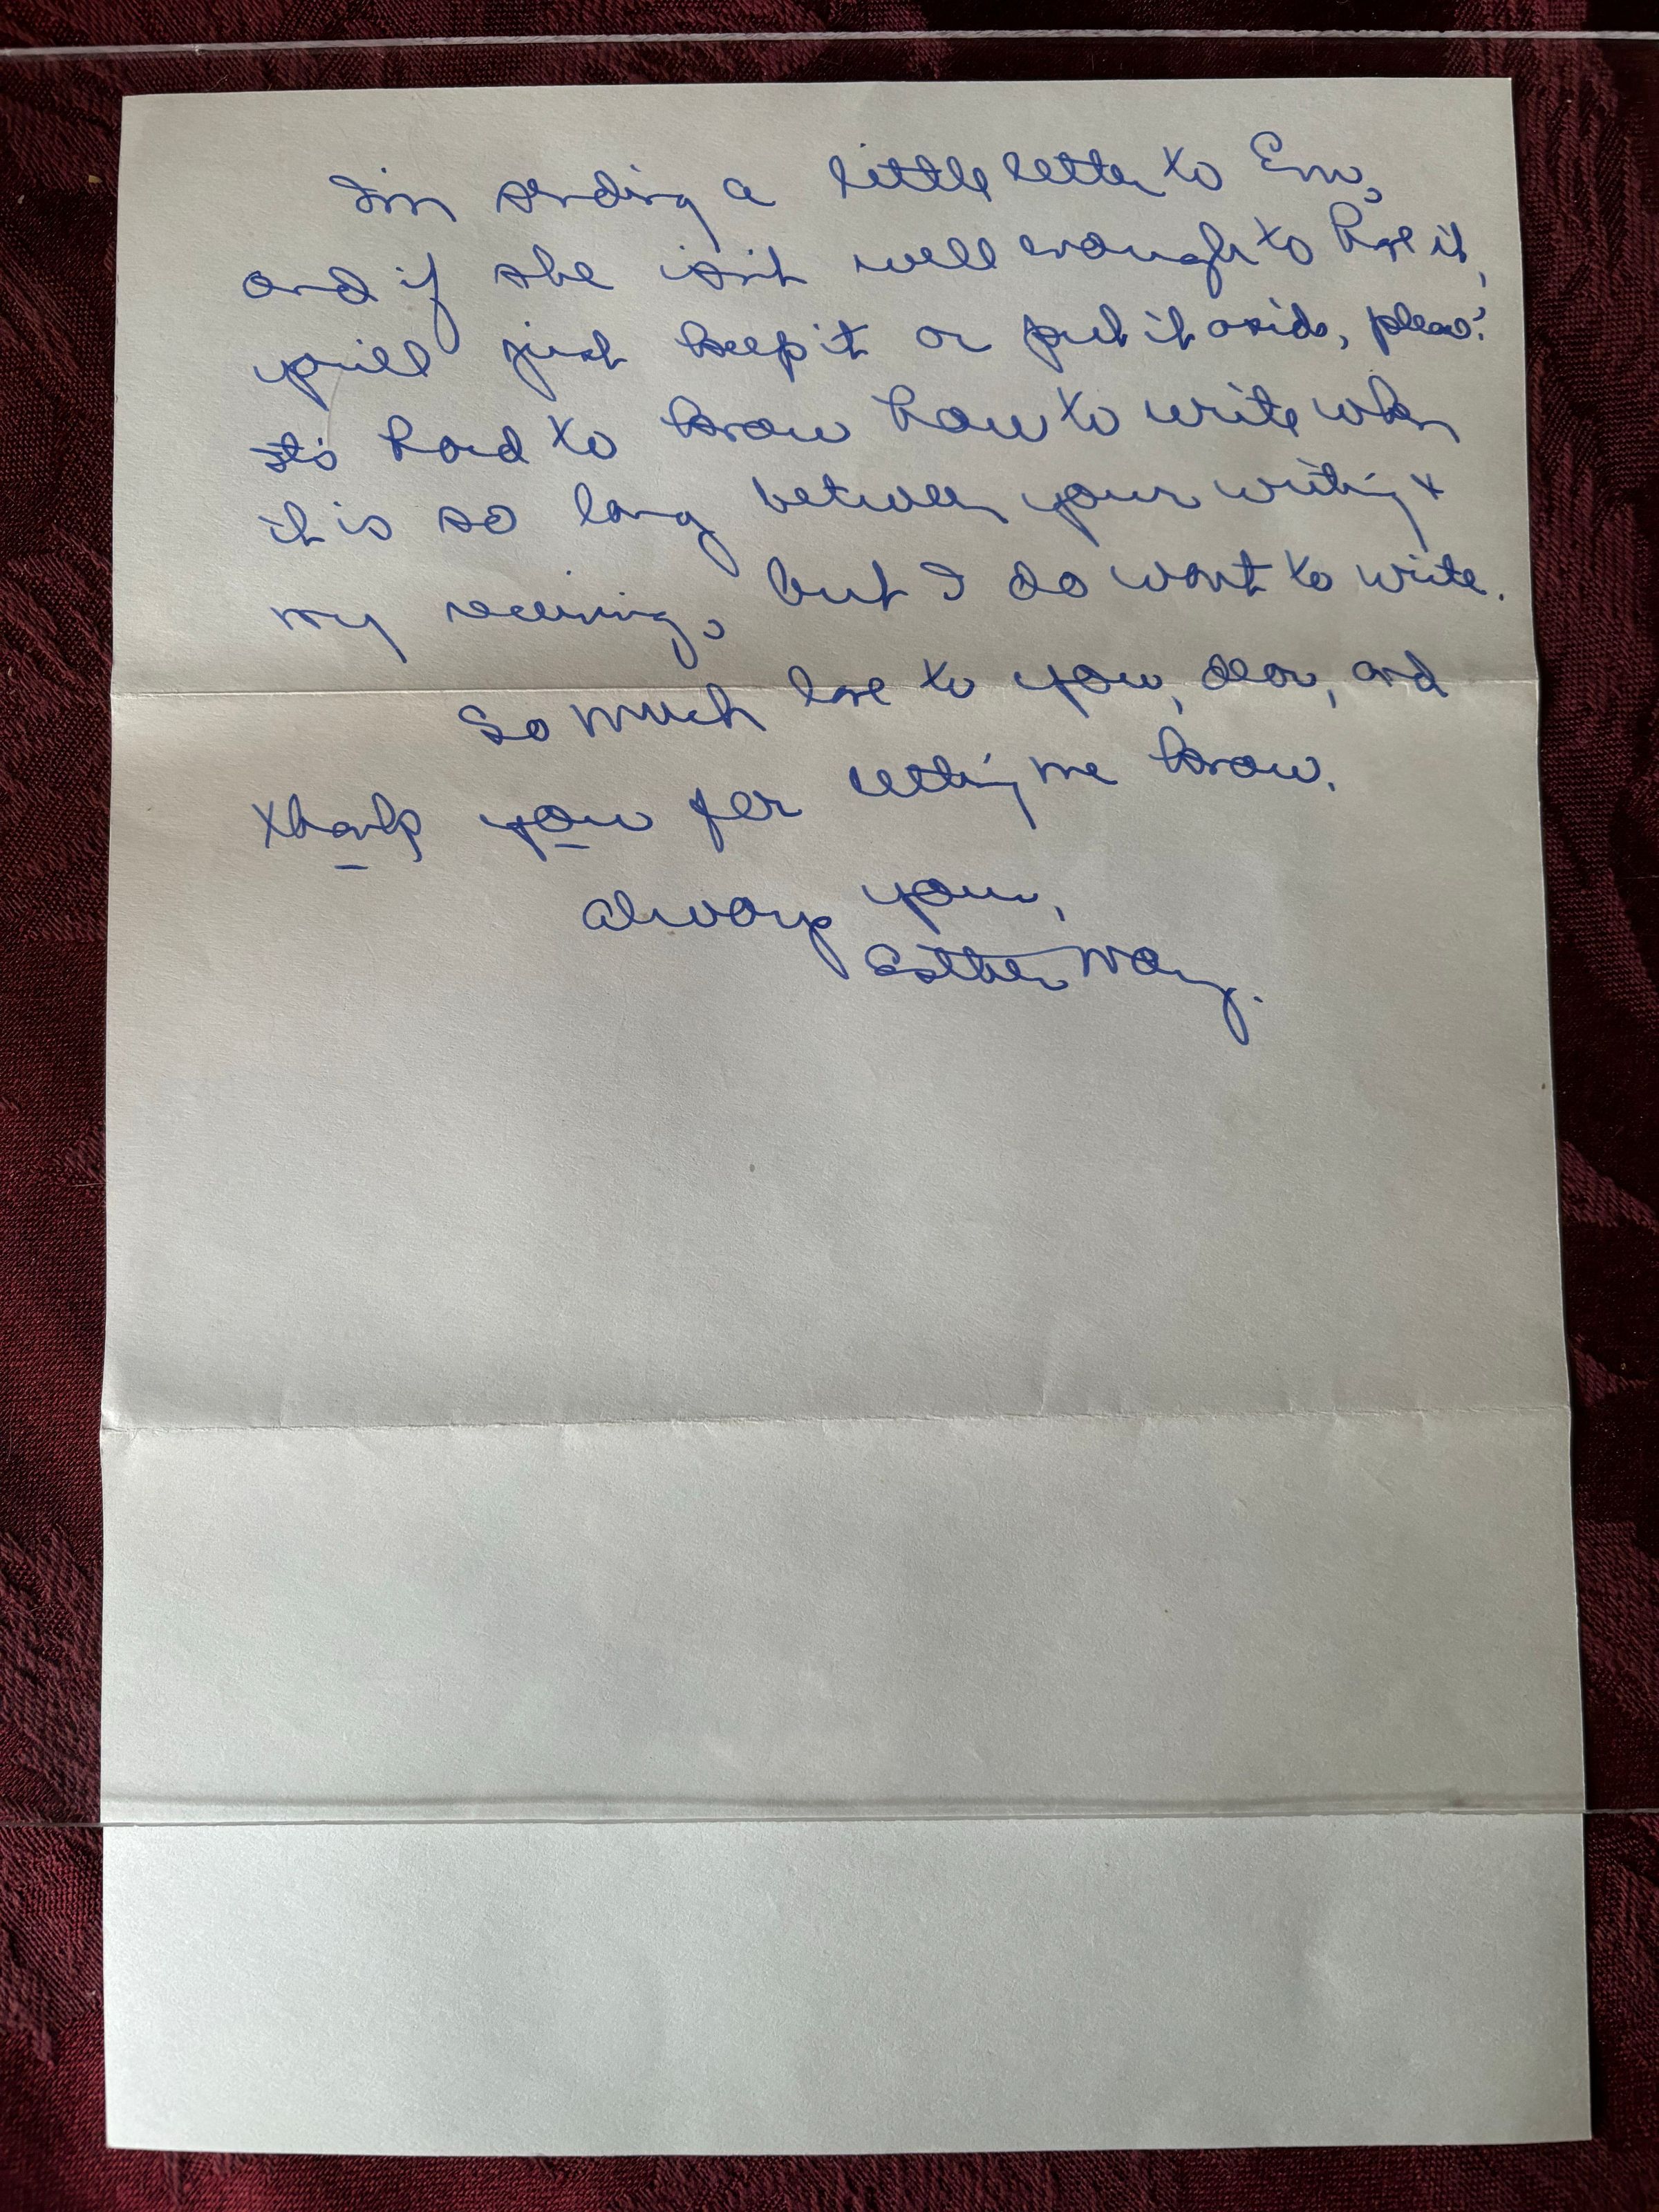 I'm sending a little letter to Em,
and if she isn't well enough to have it,
you'll just keep it or put it aside, please?
It's hard to know how to write when
it is so long between your writing &
my receiving, but I do want to write.
So much love to you, dear, and
thank you for letting me know.
Always yours,
Esther Mary.